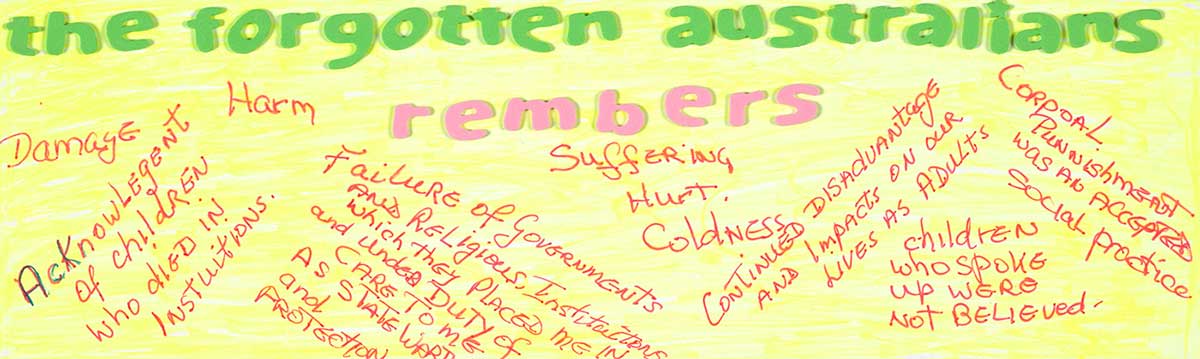 the forgotten australians
rembers
Damage
Harm
AcKnowLEgENT
of children
who dIED IN
INSTUITIONS.
FaiLURE of GovERNMENTS
AND RELigious, Instituitions
which THEY PLACED ME IN
and UNDER DUTY of
CARE TO ME
AS STATE WARD
and
PROTECTION
SuffERING
Hurt.
ColdNESS
CONTINUED DISADVANTAGE
AND ImpACTS ON OUR
LIVES AS ADULTS
CORPOAL
PUNNIShMENT
WAS AN ACCEPTED
SOCIAL PRACTICE
children
who SPOKE
up WERE
NOT BELIEVEd.